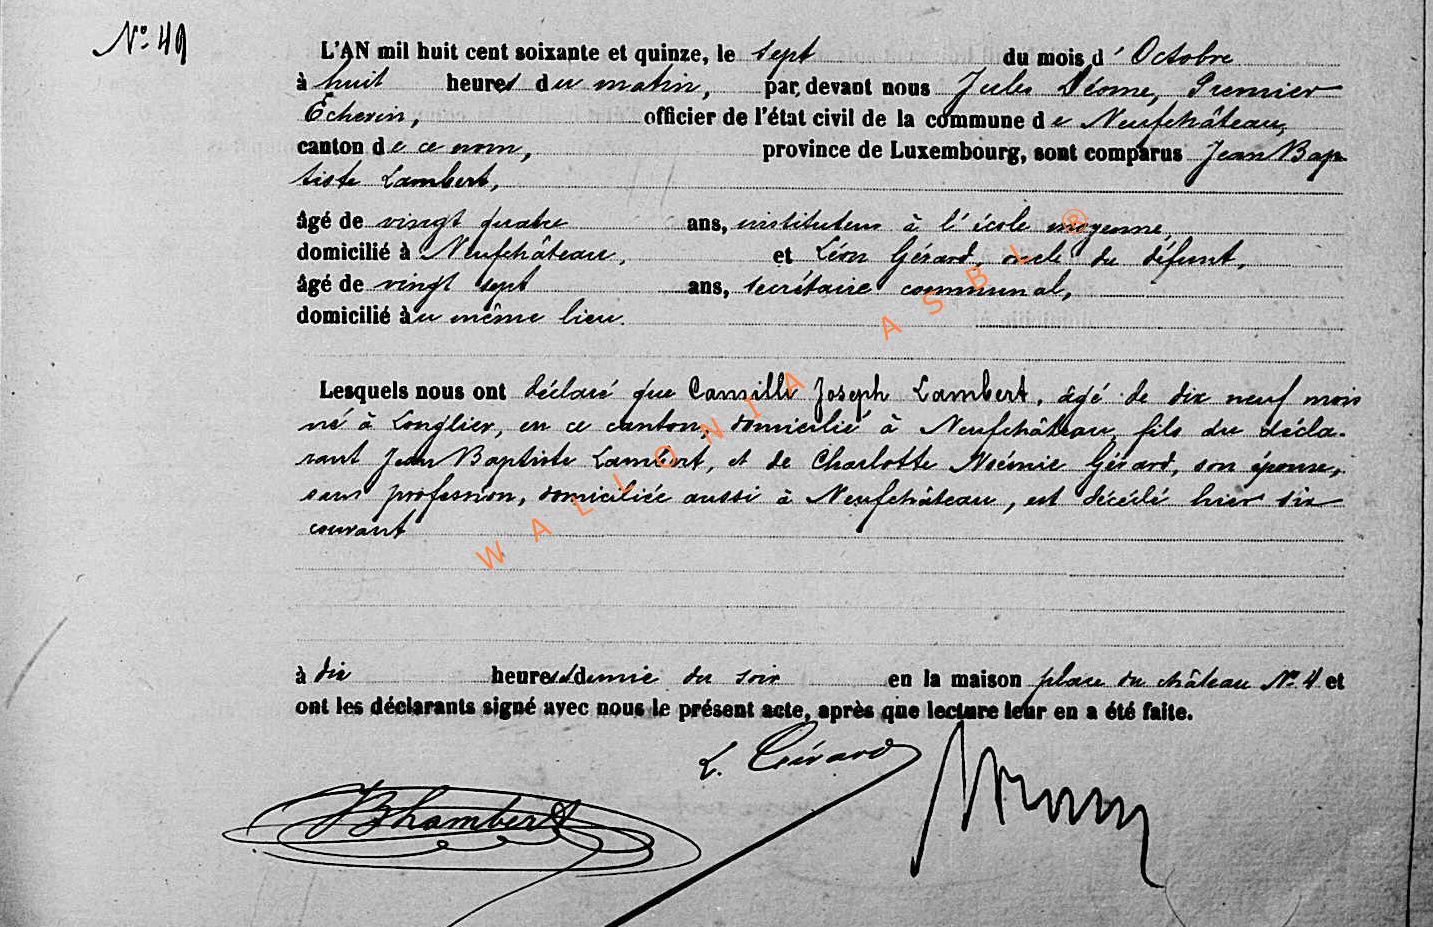 No. 49
L'AN mil huit cent soixante et quinze, le sept du mois d'Octobre
à huit heures du matin, par devant nous Jules Déome, Premier
Echevin, officier de l'état civil de la commune de Neufchâteau,
canton de ce nom, province de Luxembourg, sont comparus Jean Bap
tiste Lambert,
âgé de vingt quatre ans, instituteur à l'école moyenne,
domicilié à Neufchâteau, et Léon Gérard, oncle du défunt,
âgé de vingt sept ans, secrétaire communal,
domicilié au même lieu.
Lesquels nous ont déclaré que Camille Joseph Lambert, âgé de dix neuf mois
né à Longlier, en ce canton, domicilié à Neufchâteau, fils du décla-
rant Jean Baptiste Lambert, et de Charlotte Noémie Gérard, son épouse,
sans profession, domiciliée aussi à Neufchâteau, est décédé hier six
courant
à dix heures & demie du soir en la maison place du château No. 4 et
ont les déclarants signé avec nous le présent acte, après que lecture leur en a été faite.
L. Gérard
JBLambert
WALLONIA ASBL ®